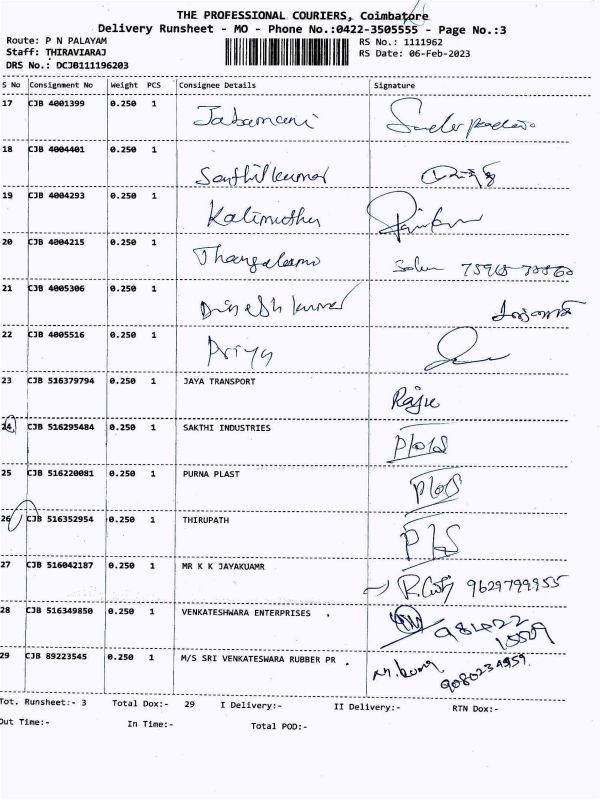 THE PROFESSIONAL COURIERS, Coimbatore
Delivery Runsheet - MO - Phone No.:0422-3505555 - Page No.:3
Route: P N PALAYAM RS No.: 1111962
Staff: THIRAVIARAJ RS Date: 06-Feb-2023
DRS No.: DCJB111196203
S No Consignment No Weight PCS Consignee Details Signature
17 CJB 4001399 0.250 1 Jabamani
18 CJB 4004401 0.250 1 Senthilkumar
19 CJB 4004293 0.250 1 Kalimuthu
20 CJB 4004215 0.250 1
21 CJB 4005306 0.250 1 Dineshkumar
22 CJB 4005516 0.250 1 Priya
23 CJB 516379794 0.250 1 JAYA TRANSPORT Raju
24 CJB 516295484 0.250 1 SAKTHI INDUSTRIES
25 CJB 516220081 0.250 1 PURNA PLAST
26 CJB 516352954 0.250 1 THIRUPATH
27 CJB 516042187 0.250 1 MR K K JAYAKUAMR 9629799955
28 CJB 516349850 0.250 1 VENKATESHWARA ENTERPRISES .
29 CJB 89223545 0.250 1 M/S SRI VENKATESWARA RUBBER PR . 9080234959
Tot. Runsheet:- 3 Total Dox:- 29 I Delivery:- II Delivery:- RTN Dox:-
Out Time:- In Time:- Total POD:-